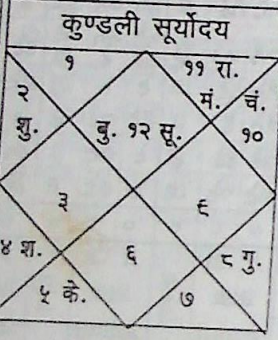 कुण्डली सूर्योदय
१ ११ रा.
२ मं. चं.
शु. बु. १२ सू. १०
३ ९
४ श. ६ ८ गु.
५ के. ७